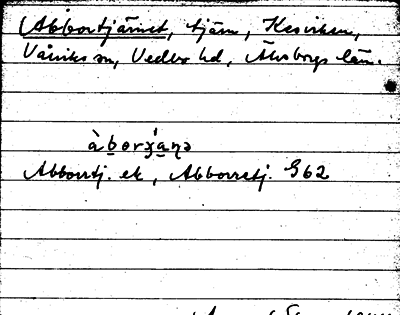 Abbortjärnet, tjärn, Kesviken,
Vårviks sn, Vedbo hd, Älvsborgs län.
àborʒ́aɳə
Abborrtj. ek, Abborretj. G62